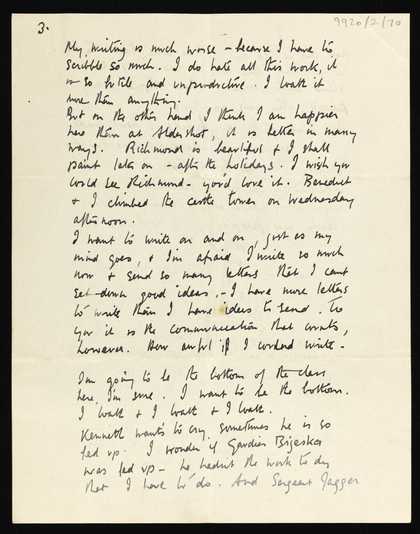 3.
9920/2/70
My writing is much worse - because I have to
scribble so much. I do hate all this work, it
is so futile and unproductive. I loathe it
more than anything.
But on the other hand I think I am happier
here than at Aldershot, it is better in many
ways. Richmond is beautiful & I shall
paint later on - after the holidays. I wish you
could see Richmond - you'd love it. Benedict
& I climbed the castle tower on Wednesday
afternoon.
I want to write on and on, just as my
mind goes, & I'm afraid I write so much
now & send so many letters that I cant
set down good ideas. - I have more letters
to write than I have ideas to send. To
you it is the communication that counts,
however. How awful if I couldnt write -
I'm going to be the bottom of the class
here, I'm sure. I want to be the bottom.
I loathe & I loathe & I loathe.
Kenneth wants to cry, sometimes he is so
fed up. I wonder if Gaudier Brjeska
was fed up - he hadnt the work to do
that I have to do. And Sergeant Jagger